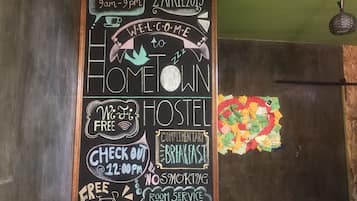 9am-9pm
WELCOME
to
HOMETOWN
HOSTEL
Wi Fi
FREE
COMPLIMENTARY
BREAKFAST
CHECK OUT
@ 12:00PM
NO SMOKING
FREE
ROOM SERVICE